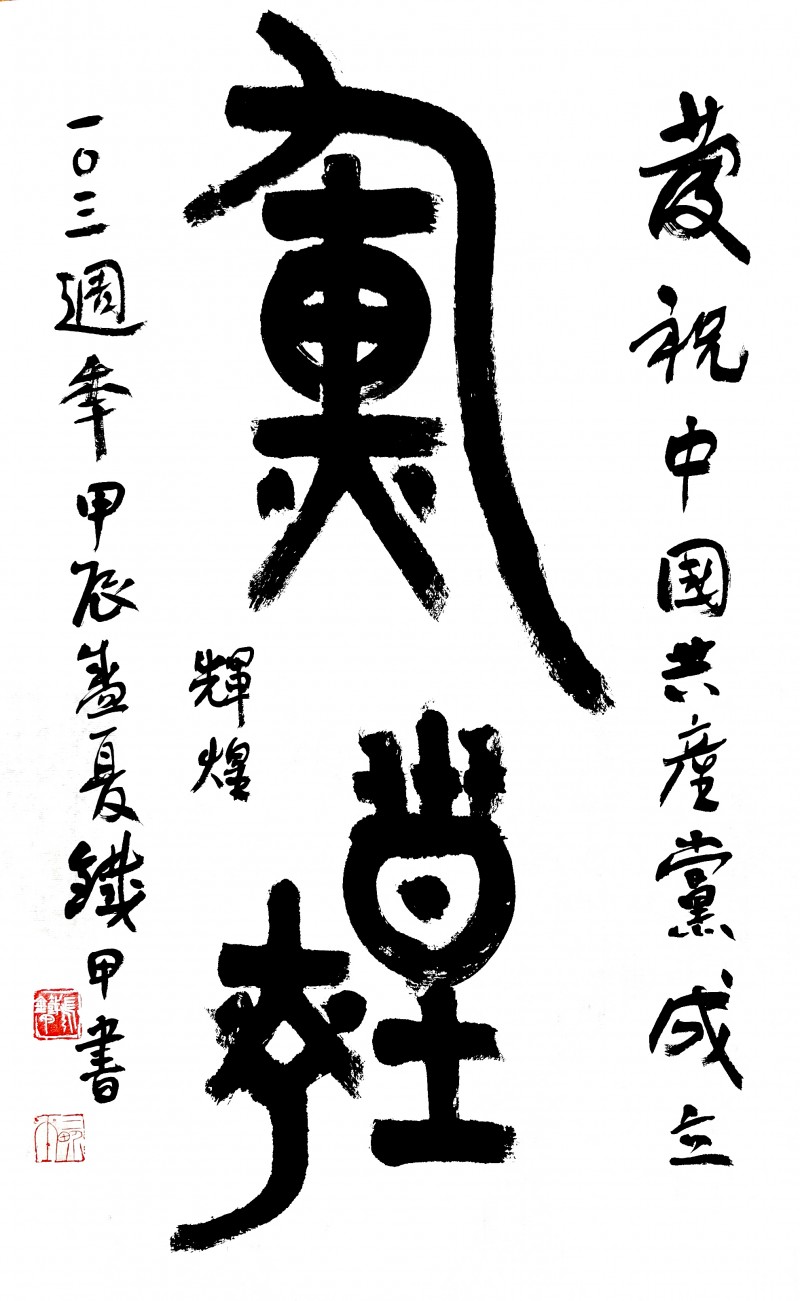 慶祝中國共産黨成立
輝煌
輝煌
一〇三週年甲辰孟夏鐵甲書